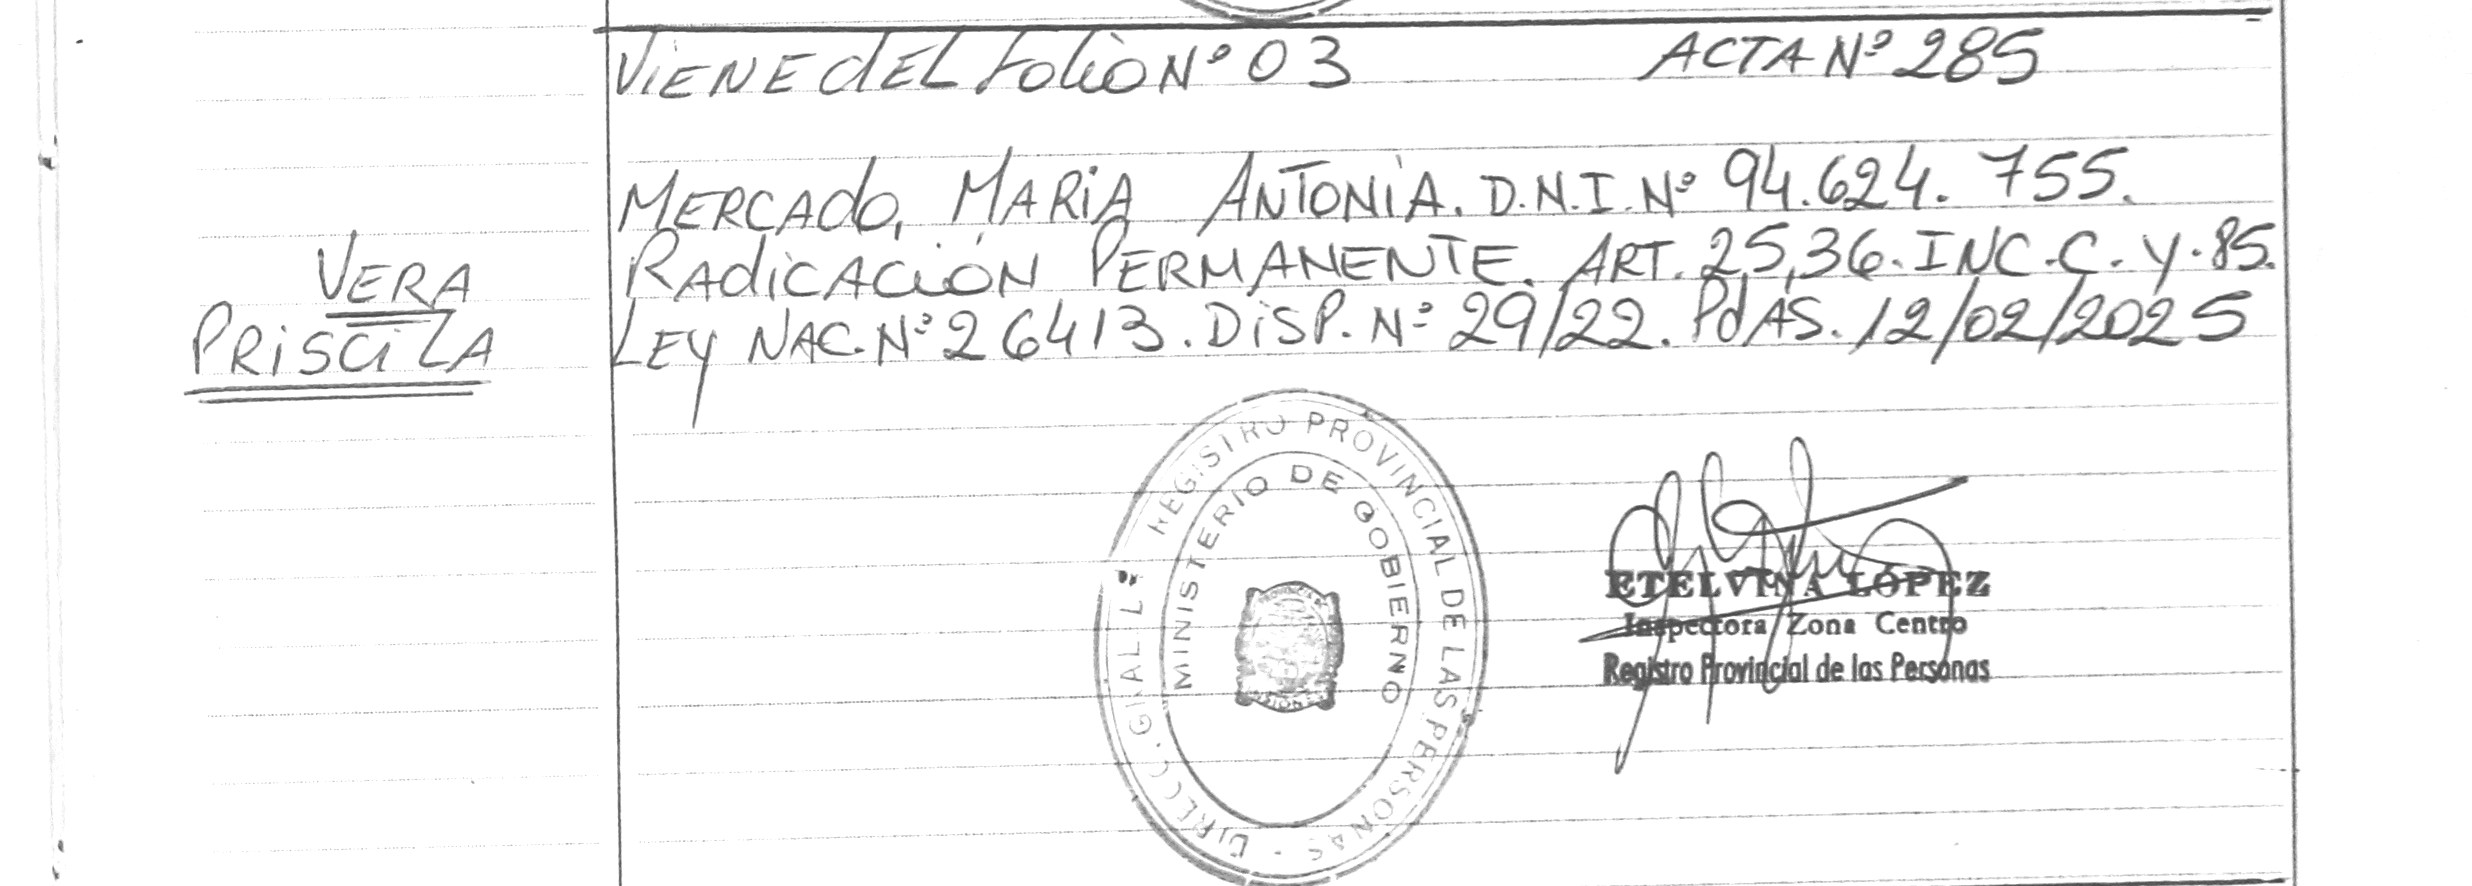 ViENE dEL Folio Nº 03 ACTA Nº 285
MERCADO, MARiA ANTONiA. D.N.I. Nº 94.624.755.
RAdiCACiÓN PERMANENTE. ART. 25,36. INC. C. Y. 85.
LEY NAC. Nº 26413. DiSP. Nº 29/22. PdAS. 12/02/2025
VERA
PRiSCiLA
REGISTRO PROVINCIAL DE LAS PERSONAS
MINISTERIO DE GOBIERNO
ETELVINA LÓPEZ
Inspectora Zona Centro
Registro Provincial de las Personas